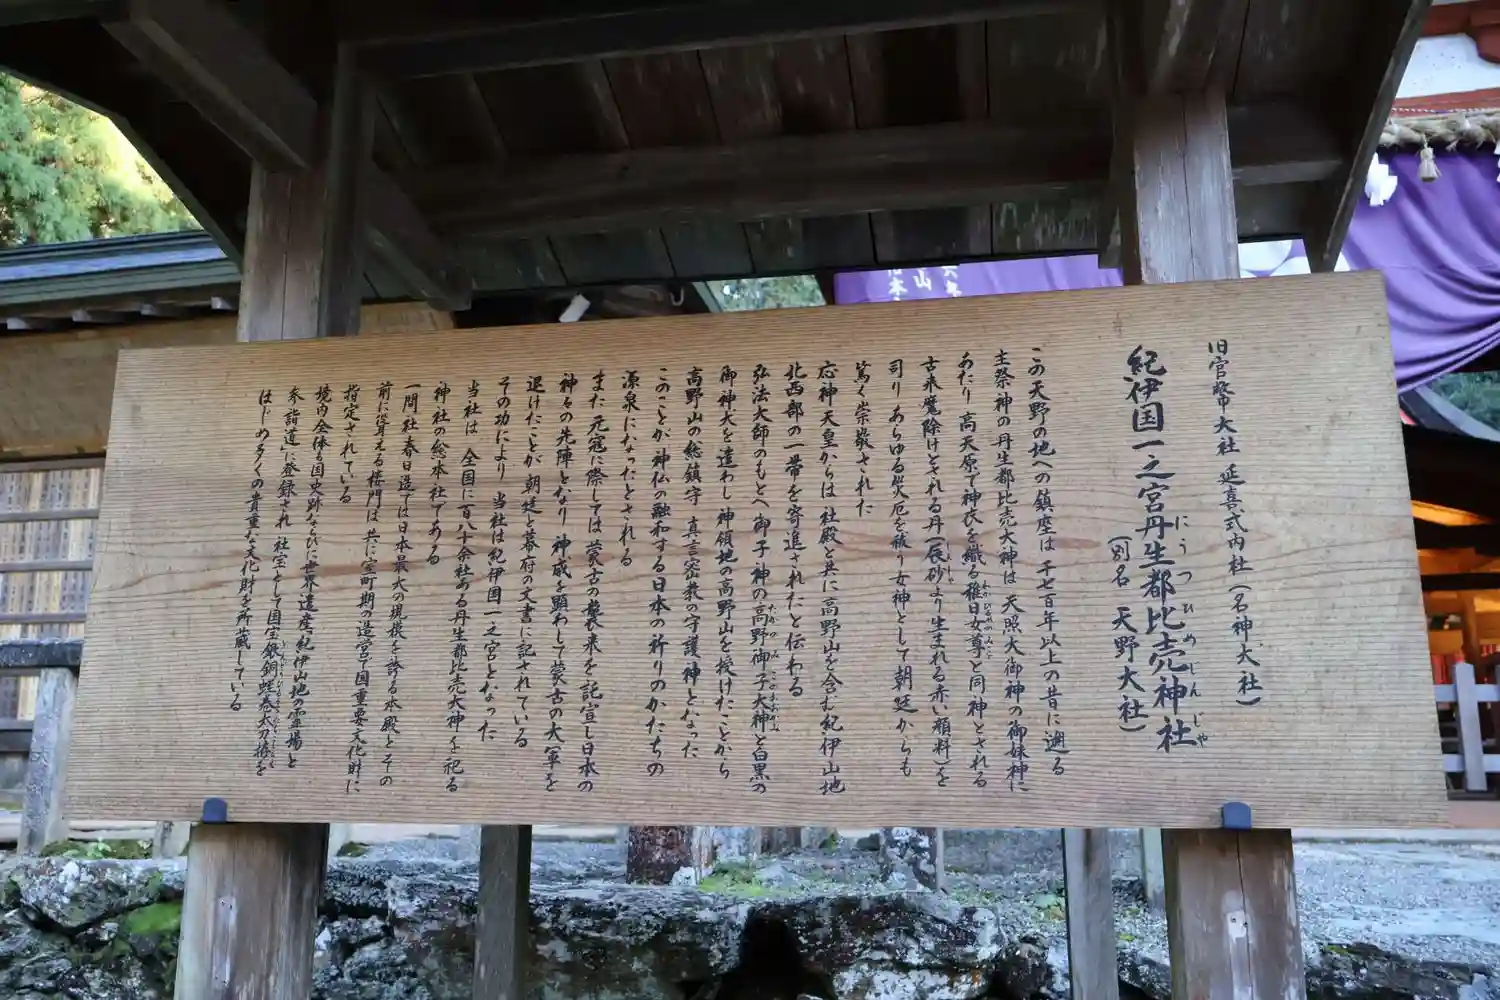 旧官幣大社 延喜式内社(名神大社)
紀伊国一之宮丹生都比売神社
にうつひめじんじゃ
(別名 天野大社)
この天野の地への鎮座は 千七百年以上の昔に遡る
主祭神の丹生都比売大神は 天照大御神の御妹神に
あたり 高天原で神衣を織る稚日女尊と同神とされる
古来魔除けとされる丹(辰砂より生まれる赤い顔料)を
司り あらゆる災厄を祓う女神として 朝廷からも
篤く崇敬された
応神天皇からは 社殿と共に 高野山を含む紀伊山地
北西部の一帯を寄進されたと伝わる
弘法大師のもとへ 御子神の高野御子大神と白黒の
御神犬を遣わし 神領地の高野山を授けたことから
高野山の総鎮守 真言密教の守護神となった
このことが 神仏の融和する日本の祈りのかたちの
源泉になったとされる
また 元寇に際しては 蒙古の襲来を託宣し 日本の
神々の先陣となり 神威を顕わして蒙古の大軍を
退けたことが 朝廷と幕府の文書に記されている
その功により 当社は紀伊国一之宮となった
当社は 全国に百八十余社ある丹生都比売大神を祀る
神社の総本社である
一間社春日造では日本最大の規模を誇る本殿とその
前に聳える楼門は 共に室町期の造営で国重要文化財に
指定されている
境内全体も国史跡ならびに世界遺産「紀伊山地の霊場と
参詣道」に登録され 社宝として国宝 銀銅蛭巻太刀拵を
はじめ多くの貴重な文化財を所蔵している